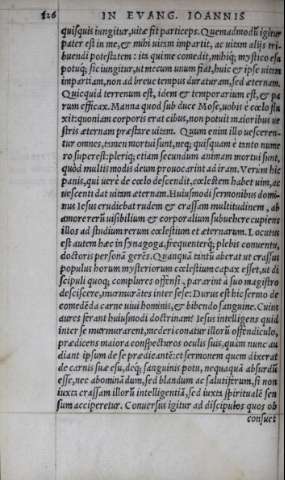 126 IN EVANG. IOANNIS
quisquis iungitur, uitæ fit particeps. Quemadmodũ igitur
pater est in me, & mihi uitam impartit, ac uitam alijs tri-
buendi potestatem: ita qui me comedit, mihiq; mystico esu
potuq; sic iungitur, ut mecum unum fiat, huic & ipse uitam
impartiam, non ad breue tempus duraturam, sed æternam.
Quicquid terrenum est, idem & temporarium est, & pa
rum efficax. Manna quod sub duce Mose, uobis è cœlo flu
xit: quoniam corporis erat cibus, non potuit maioribus ue
stris æternam præstare uitam. Quum enim illo uesceren-
tur omnes, tamen mortui sunt, neq; quisquam è tanto nume
ro superest: pleriq; etiam secundum animam mortui sunt,
quòd multis modis deum prouocarint ad iram. Verum hic
panis, qui uerè de cœlo descendit, cœlestem habet uim, ac
uescenti dat uitam æternam. Huiusmodi sermonibus domi-
nus Iesus erudiebat rudem & crassam multitudinem, ab
amore rerũ uisibilium & corporalium subuehere cupiens
illos ad studium rerum cœlestium et æternarum. Locutus
est autem hæc in synagoga, frequenterq; plebis conuentu,
doctoris personã gerẽs. Quanquã tantũ aberat ut crassus
populus horum mysteriorum cœlestium capax esset, ut di
scipuli quoq; complures offensi, pararint à suo magistro
desciscere, murmurãtes inter sese: Durus est hic sermo de
comedẽda carne uiui hominis, & bibendo sanguine. Cuius
aures ferant huiusmodi doctrinam? Iesus intelligens quid
inter se murmurarent, mederi conatur illorũ offendiculo,
prædicens maiora conspecturos oculis suis, quàm nunc au
diant ipsum de se prædicantẽ: et sermonem quem dixerat
de carnis suæ esu, deq; sanguinis potu, nequaquã absurdũ
esse, nec abominãdum, sed blandum ac salutiferum, si non
iuxta crassam illorũ intelligentiã, sed iuxta spiritualẽ sen
sum acciperetur. Conuersus igitur ad discipulos quos ob
consuet